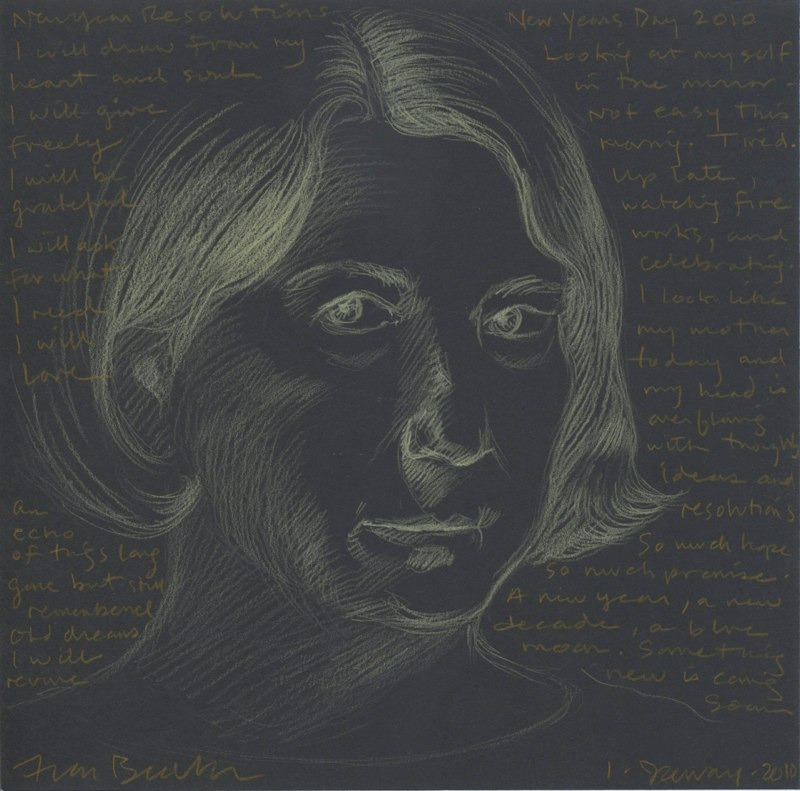 New Year Resolutions
I will draw from my
heart and soul
I will give
freely
I will be
grateful
I will ask
for what
I need
I will
Love
an
echo
of things long
gone but still
remembered
old dreams
I will
revive
New Years Day 2010
Looking at myself
in the mirror
Not easy this
morning. Tired.
Up late,
watching fire
works, and
celebrating.
I look like
my mother
today and
my head is
overflowing
with thoughts
ideas and
resolutions
So much hope
so much promise.
A new year, a new
decade, a blue
moon. Something
new is coming
Soon
Fran
1 . January . 2010